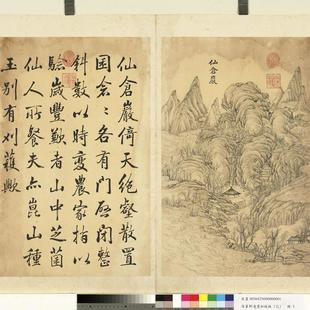 仙倉巖
仙倉巖倚天絶壑散置
囷倉〻各有門啓閉整
斜數以時變農家指以
驗歲豐歉者山中芝菌
仙人所餐夫亦崑山種
玉别有刈穫歟